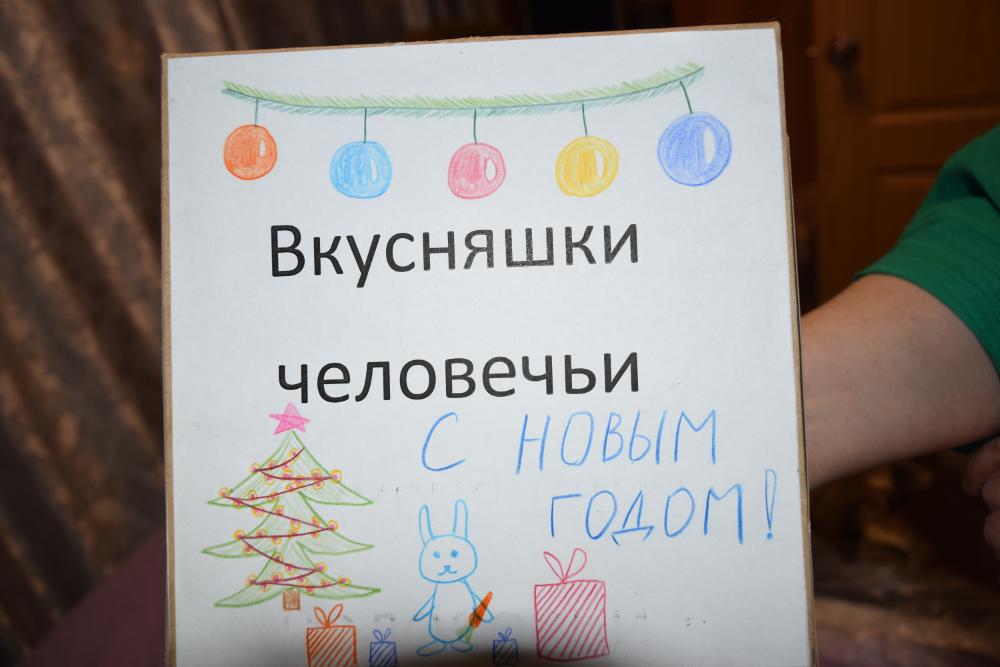 Вкусняшки
человечьи
С НОВЫМ
ГОДОМ!